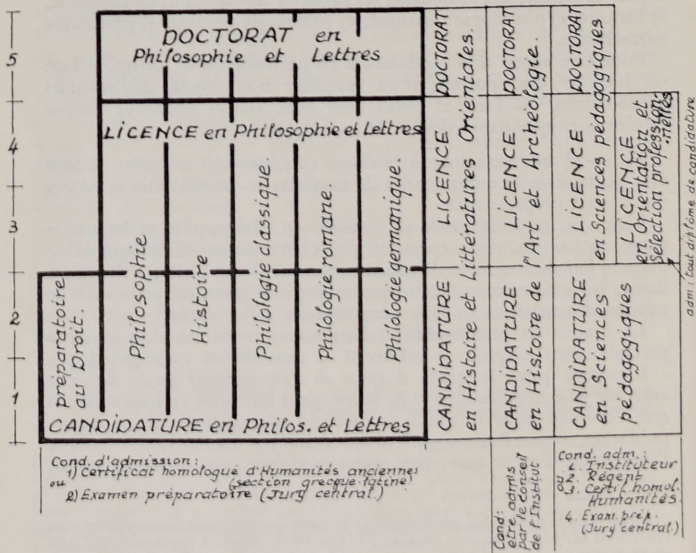 5
4
3
2
1
DOCTORAT en
Philosophie et Lettres
LICENCE en Philosophie et Lettres
préparatoire
au Droit.
Philosophie
Histoire
Philologie classique.
Philologie romane.
Philologie germanique.
CANDIDATURE en Philos. et Lettres
CANDIDATURE LICENCE DOCTORAT
en Histoire et Littératures Orientales.
CANDIDATURE LICENCE DOCTORAT
en Histoire de l'Art et Archéologie.
DOCTORAT
LICENCE
en Sciences pédagogiques
CANDIDATURE
en Sciences
pédagogiques
LICENCE
en Orientation et
Sélection profession-
nelles
adm: tout diplôme de candidature
Cond. d'admission:
1) Certificat homologué d'Humanités anciennes
ou (section grecque-latine)
2) Examen préparatoire (Jury central.)
Cond:
etre admis
par le Conseil
de l'Institut
Cond. adm.:
1. Instituteur
2. Régent
ou
3. Certif. homol.
Humanités.
4. Exam. prép.
(Jury central.)